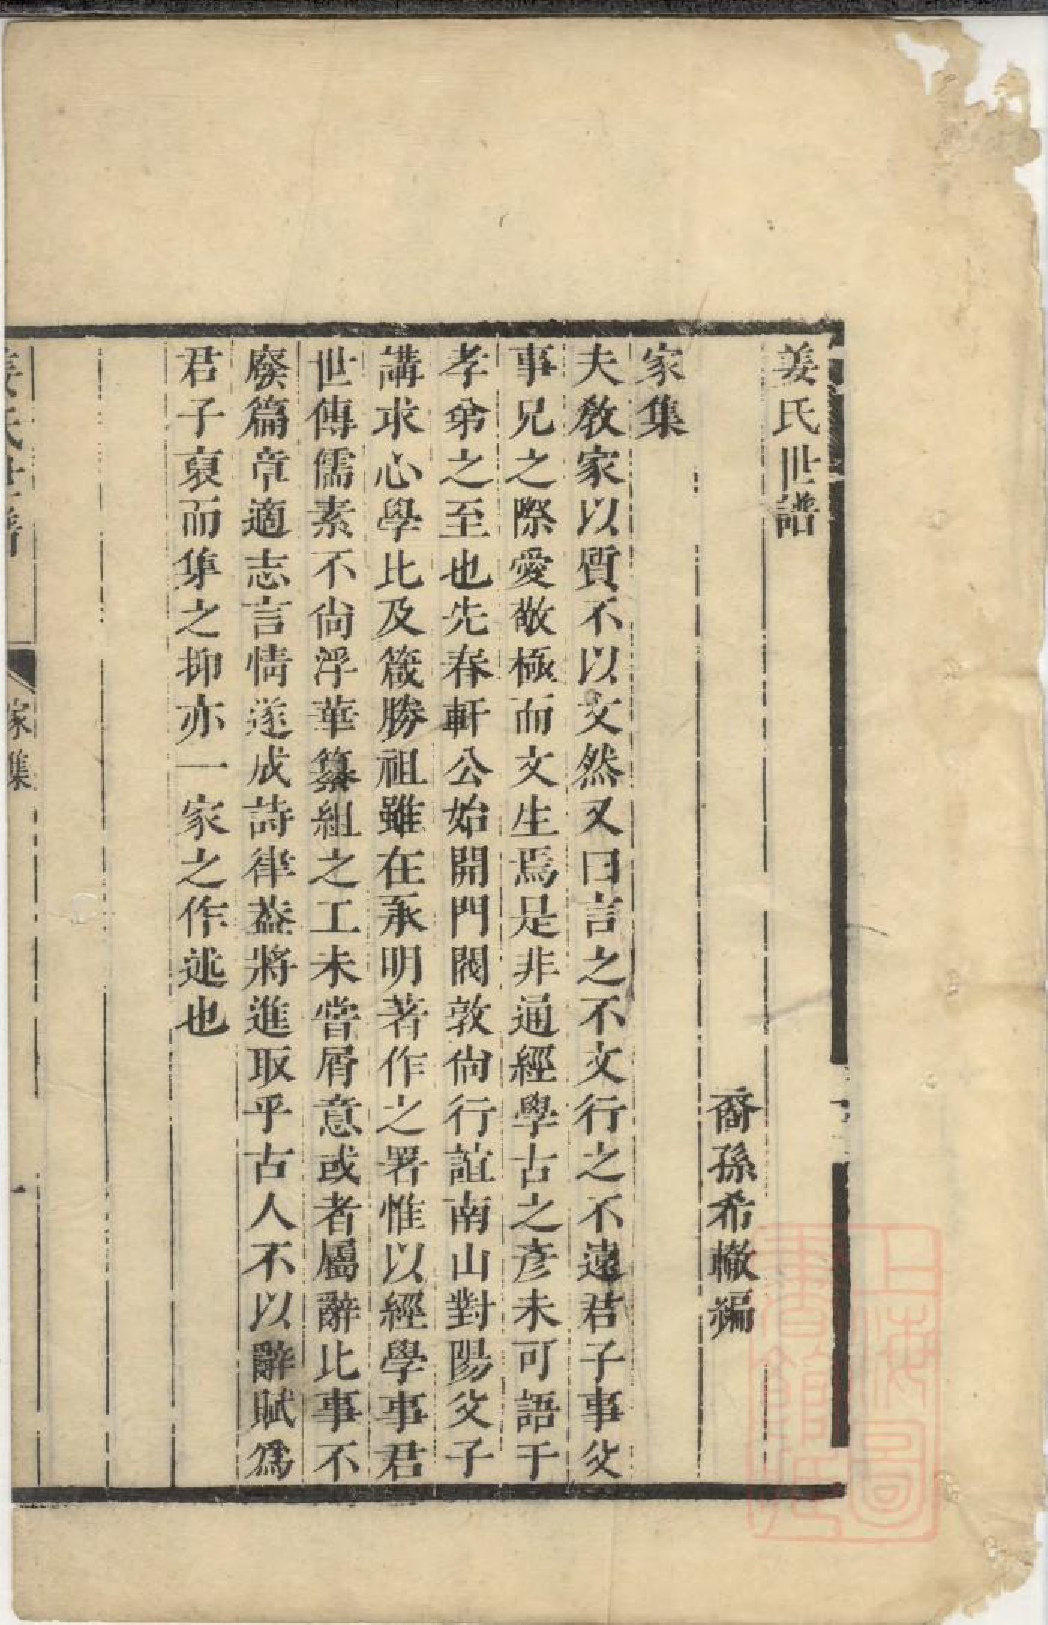 姜氏世譜
裔孫希轍編
家集
夫敎家以質不以文然又曰言之不文行之不遠君子事父
事兄之際愛敬極而文生焉是非通經學古之彥未可語于
孝弟之至也先春軒公始開門閥敦尙行誼南山對陽父子
講求心學比及箴勝祖雖在承明著作之署惟以經學事君
世傳儒素不尙浮華纂組之工未嘗屑意或者屬辭比事不
廢篇章適志言情遂成詩律葢將進取乎古人不以辭賦爲
君子裒而集之抑亦一家之作述也
姜氏世譜
家集
一
上海圖
書館藏